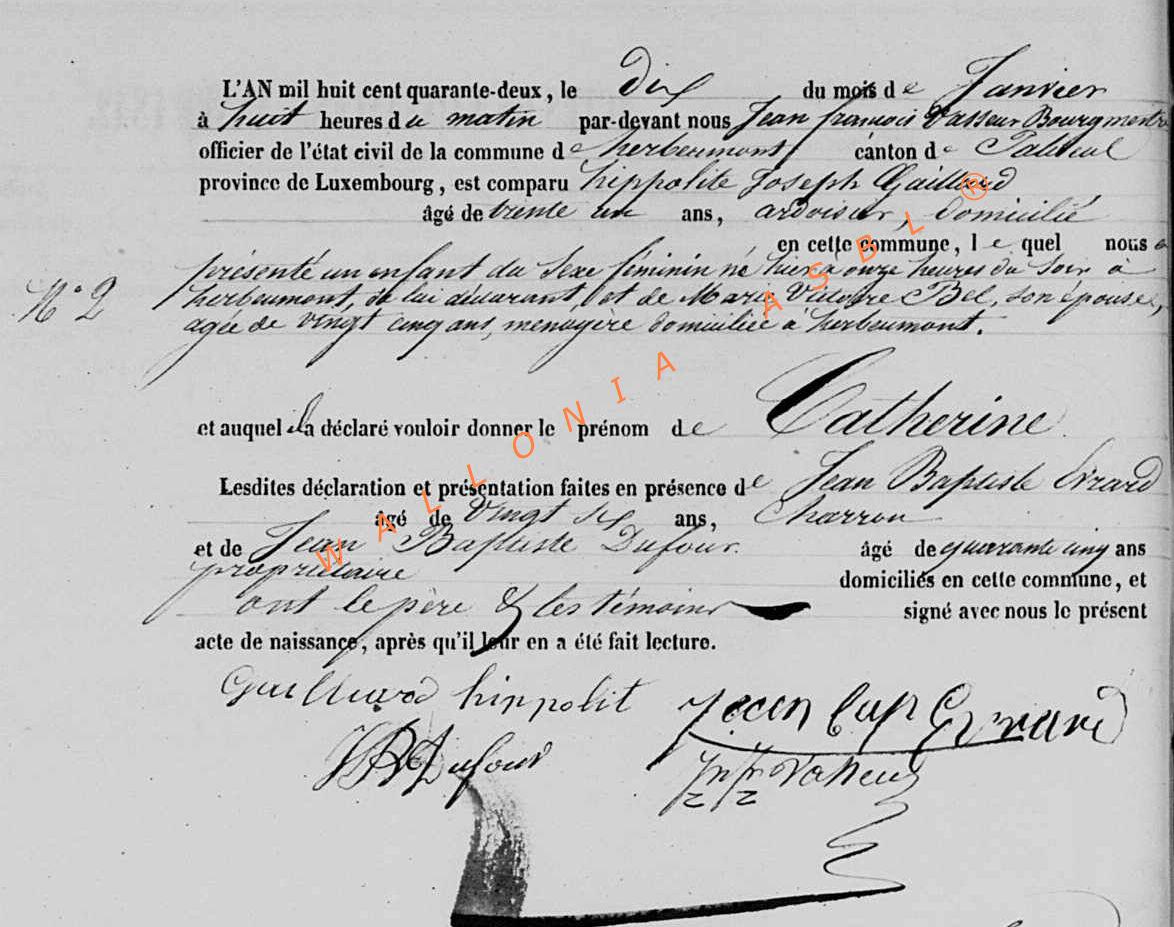 L'AN mil huit cent quarante-deux, le dix du mois de Janvier
à huit heures du matin par-devant nous Jean françois Vasseur Bourgmestre
officier de l'état civil de la commune de herbeumont canton de Paliseul
province de Luxembourg, est comparu hippolite Joseph Gailliard
âgé de trente un ans, ardoisier, domicilié
en cette commune, lequel nous a
présenté un enfant du sexe féminin né hier à onze heures du soir à
N° 2 herbeumont, de lui déclarant, et de Marie Victoire Bel, son épouse,
agée de vingt cinq ans, menagère domiciliée à herbeumont.
et auquel il a déclaré vouloir donner le prénom de Catherine
Lesdites déclaration et présentation faites en présence de Jean Baptiste Evrard
âgé de vingt six ans, Charron
et de Jean Baptiste Dufour âgé de quarante cinq ans
propriétaire domiciliés en cette commune, et
ont le père & les témoins signé avec nous le présent
acte de naissance, après qu'il leur en a été fait lecture.
Gailliard hippolit Jean bap Evrard
JB Dufour Vasseur
WALLONIA ASBL ®